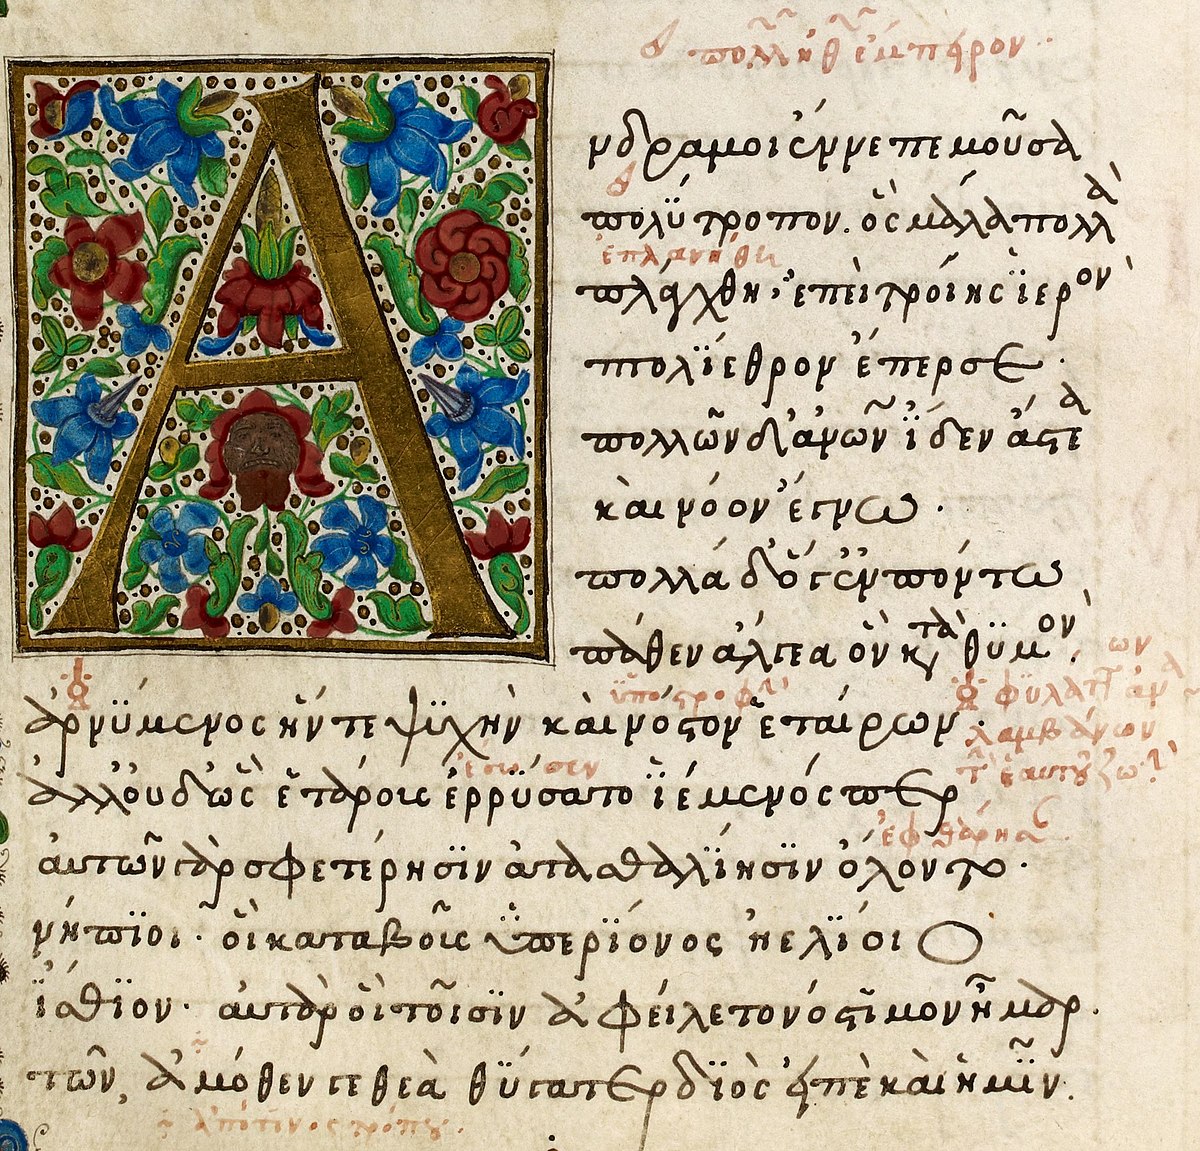 Α
νδρα μοι ἔννεπε μοῦσα
πολύτροπον. ὃς μάλα πολλὰ
ἐπλανήθη
πλάγχθη, ἐπεὶ τροίης ἱερὸν
πτολίεθρον ἔπερσε.
πολλῶν δ' ἀνθρώπων ἴδεν ἄστεα
καὶ νόον ἔγνω.
πολλὰ δ' ὅγ' ἐν πόντω
πάθεν ἄλγεα ὃν κατὰ θυμὸν.
ὑποστροφὴν
ἀρνύμενος ἥν τε ψυχὴν καὶ νόστον ἑταίρων.
λαμβάνων
ἔσωσεν
ἀλλ' οὐδ' ὧς ἑτάροις ἐρρύσατο ἱέμενός περ
ἐφθάρησαν
αὐτῶν γὰρ σφετέρησιν ἀτασθαλίησιν ὄλοντο.
νήπιοι. οἳ κατὰ βοῦς ὑπερίονος ἠελίοιο
ἤσθιον. αὐτὰρ ὁ τοῖσιν ἀφείλετο νόστιμον ἦμαρ.
τῶν, ἁμόθεν γε θεὰ θύγατερ διὸς εἰπὲ καὶ ἡμῖν.
ἀπό τινος τρόπου.